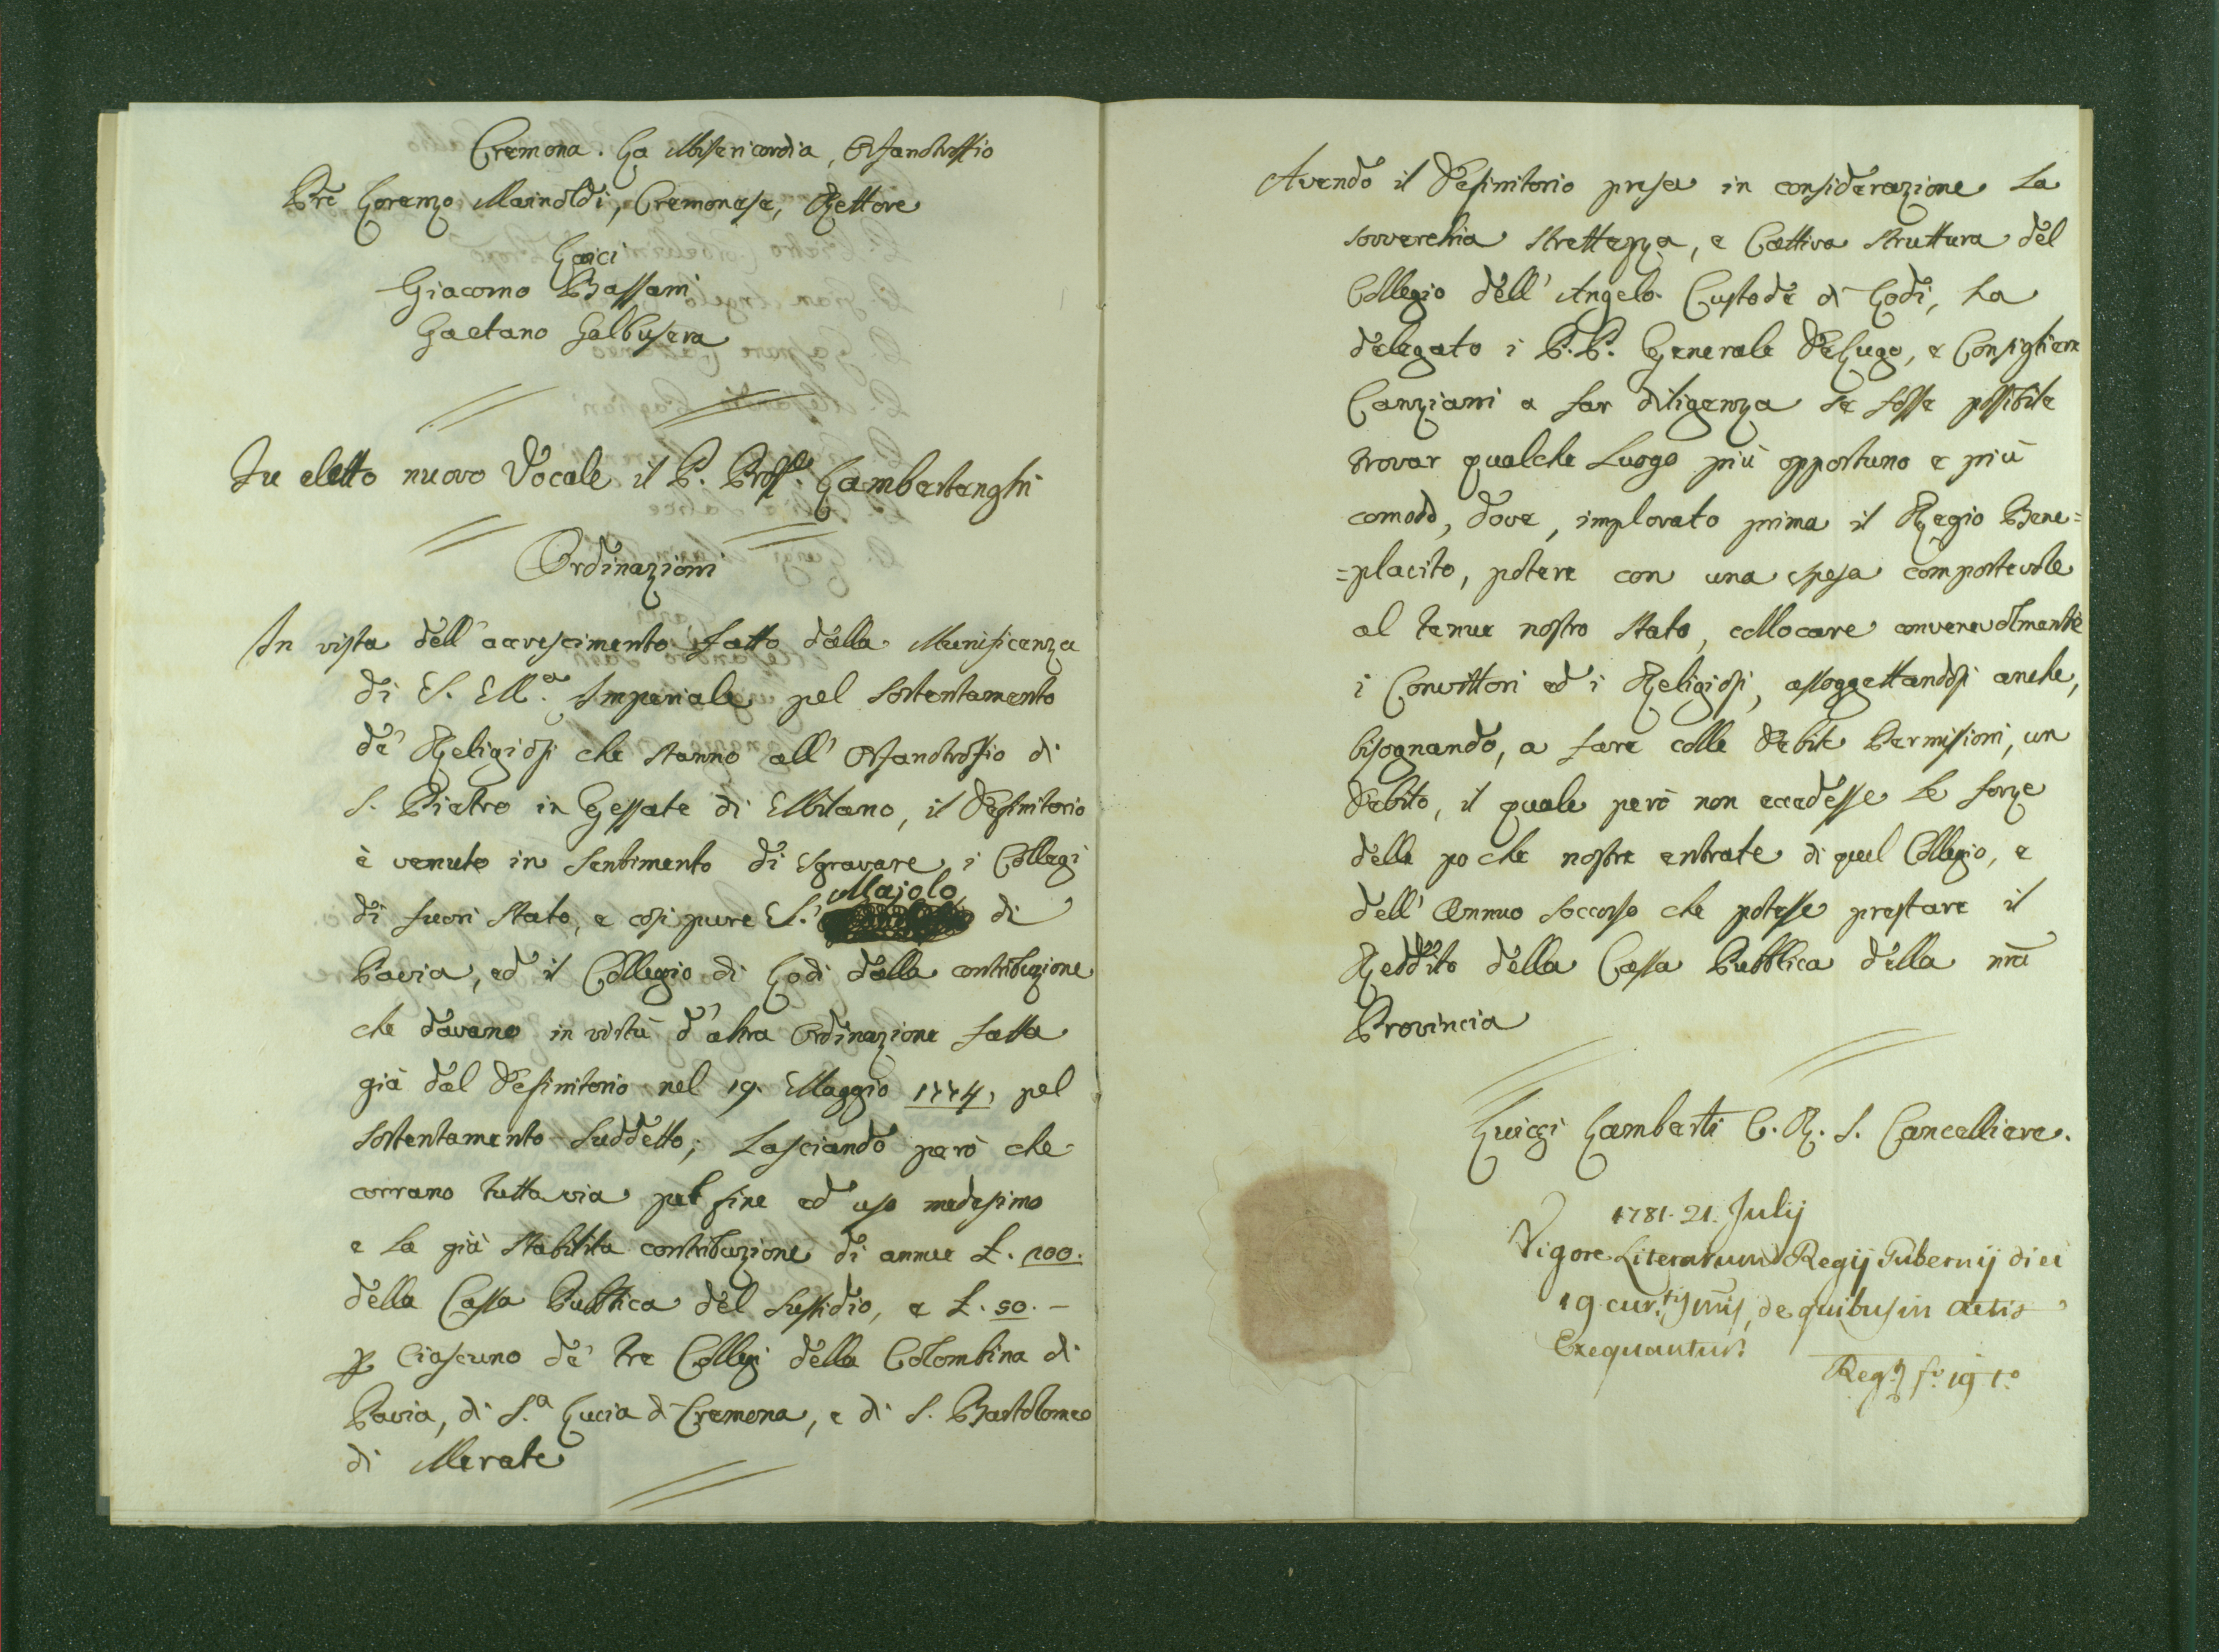 Cremona. La Misericordia, Orfanotrofio
Pre Lorenzo Mainoldi, Cremonese, Rettore
Laici
Giacomo Bassani
Gaetano Galbusera
Fu eletto nuovo Vocale il P. Prossle. Lambertenghi
Ordinazioni
In vista dell'accrescimento fatto dalla Munificenza
di S. M.a Imperiale pel sostentamento
de' Religiosi che stanno all' Orfanotrofio di
S. Pietro in Gessate di Milano, il Definitorio
è venuto in sentimento di sgravare i Collegi
di fuori Stato, e così pure S. Majolo di
Pavia, ed il Collegio di Lodi dalla contribuzione
che davano in virtù d'altra Ordinazione fatta
già dal Definitorio nel 19. Maggio 1774, pel
sostentamento suddetto; Lasciando però che
corrano tuttavia pel fine ed uso medesimo
e la già stabilita contribuzione di annue L. 200.
della Cassa Pubblica del Sussidio, e L. 50. -
p Ciascuno de' tre Collegi della Colombina di
Pavia, di S.a Lucia di Cremona, e di S. Bartolomeo
di Merate
Avendo il Definitorio presa in considerazione la
soverchia strettezza, e Cattiva struttura del
Collegio dell' Angelo Custode di Lodi, ha
delegato i P.P. Generale DeLugo, e Consigliere
Canziani a far diligenza se fosse possibile
trovar qualche Luogo più opportuno e più
comodo, dove, implorato prima il Regio Bene=
=placito, potere con una spesa comportevole
al tenue nostro stato, collocare convenevolmente
i Convittori ed i Religiosi, assoggettandosi anche,
bisognando, a fare colle debite Permissioni, un
debito, il quale però non eccedesse le forze
delle poche nostre entrate di quel Collegio, e
dell' Annuo soccorso che potesse prestare il
Reddito della Cassa Pubblica della nra
Provincia
Luigi Lamberti C. R. S. Cancelliere.
1781. 21. Julij
Vigore Literarum Regij Gubernij diei
19 cur.tis mis, de quibus in Actis
Exequantur.
Reg. fo. 19 to.